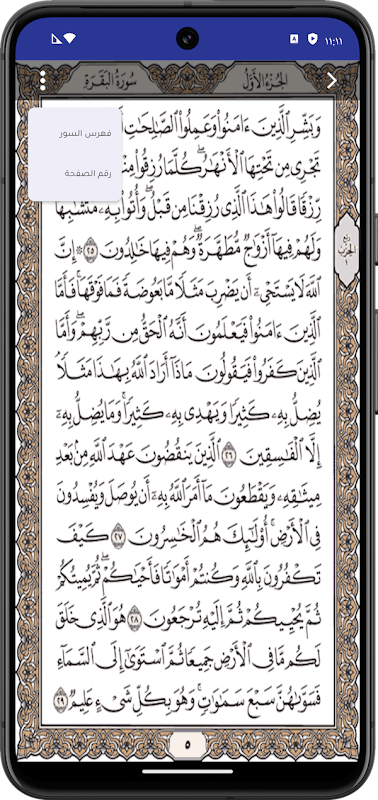 ١١:١١
الجزء الأول
سورة البقرة
فهرس السور
رقم الصفحة
وَبَشِّرِ ٱلَّذِينَ ءَامَنُوا۟ وَعَمِلُوا۟ ٱلصَّٰلِحَٰتِ
تَجْرِى مِن تَحْتِهَا ٱلْأَنْهَٰرُ ۖ كُلَّمَا رُزِقُوا۟
رِّزْقًا قَالُوا۟ هَٰذَا ٱلَّذِى رُزِقْنَا مِن قَبْلُ ۖ وَأُتُوا۟ بِهِۦ مُتَشَٰبِهًا ۖ
وَلَهُمْ فِيهَآ أَزْوَٰجٌ مُّطَهَّرَةٌ ۖ وَهُمْ فِيهَا خَٰلِدُونَ ٢٥ ۞ إِنَّ
ربع الحزب
ٱللَّهَ لَا يَسْتَحْىِۦٓ أَن يَضْرِبَ مَثَلًا مَّا بَعُوضَةً فَمَا فَوْقَهَا ۚ فَأَمَّا
ٱلَّذِينَ ءَامَنُوا۟ فَيَعْلَمُونَ أَنَّهُ ٱلْحَقُّ مِن رَّبِّهِمْ ۖ وَأَمَّا
ٱلَّذِينَ كَفَرُوا۟ فَيَقُولُونَ مَاذَآ أَرَادَ ٱللَّهُ بِهَٰذَا مَثَلًا ۘ
يُضِلُّ بِهِۦ كَثِيرًا وَيَهْدِى بِهِۦ كَثِيرًا ۚ وَمَا يُضِلُّ بِهِۦٓ
إِلَّا ٱلْفَٰسِقِينَ ٢٦ ٱلَّذِينَ يَنقُضُونَ عَهْدَ ٱللَّهِ مِنۢ بَعْدِ
مِيثَٰقِهِۦ وَيَقْطَعُونَ مَآ أَمَرَ ٱللَّهُ بِهِۦٓ أَن يُوصَلَ وَيُفْسِدُونَ
فِى ٱلْأَرْضِ ۚ أُو۟لَٰٓئِكَ هُمُ ٱلْخَٰسِرُونَ ٢٧ كَيْفَ
تَكْفُرُونَ بِٱللَّهِ وَكُنتُمْ أَمْوَٰتًا فَأَحْيَٰكُمْ ۖ ثُمَّ يُمِيتُكُمْ
ثُمَّ يُحْيِيكُمْ ثُمَّ إِلَيْهِ تُرْجَعُونَ ٢٨ هُوَ ٱلَّذِى خَلَقَ
لَكُم مَّا فِى ٱلْأَرْضِ جَمِيعًا ثُمَّ ٱسْتَوَىٰٓ إِلَى ٱلسَّمَآءِ
فَسَوَّىٰهُنَّ سَبْعَ سَمَٰوَٰتٍ ۚ وَهُوَ بِكُلِّ شَىْءٍ عَلِيمٌ ٢٩
٥